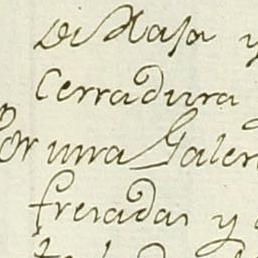 de Nasa y
Cerradura
Por unna Galer
fresadas y